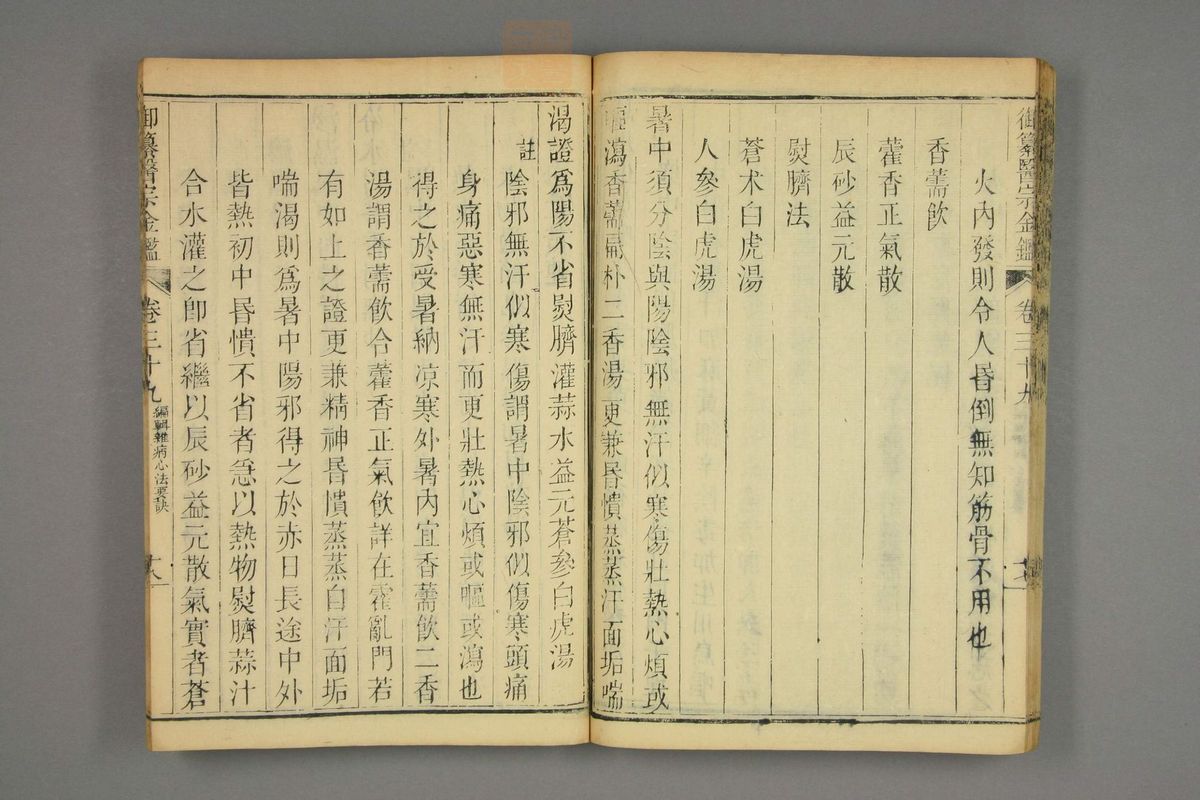 御纂醫宗金鑑 卷三十九
火內發則令人昏倒無知筋骨不用也
香薷飲
藿香正氣散
辰砂益元散
熨臍法
蒼术白虎湯
人參白虎湯
暑中須分陰與陽陰邪無汗似寒傷壯熱心煩或
嘔瀉香薷扁朴二香湯更兼昏憒蒸蒸汗面垢喘
渴證爲陽不省熨臍灌蒜水益元蒼參白虎湯
註 陰邪無汗似寒傷謂暑中陰邪似傷寒頭痛
身痛惡寒無汗而更壯熱心煩或嘔或瀉也
得之於受暑納凉寒外暑內宜香薷飲二香
湯謂香薷飲合藿香正氣飲詳在霍亂門若
有如上之證更兼精神昏憒蒸蒸自汗面垢
喘渴則爲暑中陽邪得之於赤日長途中外
皆熱初中昏憒不省者急以熱物熨臍蒜汁
合水灌之卽省繼以辰砂益元散氣實者蒼
御纂醫宗金鑑 卷三十九 編輯雜病心法要訣 十八